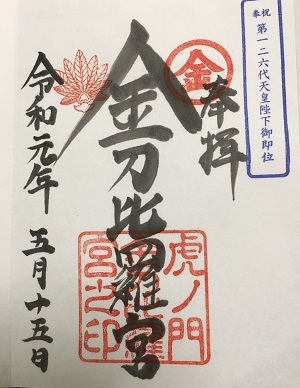 奉祝
第一二六代天皇陛下御即位
金
奉拝
金刀比羅宮
虎ノ門
金刀比羅
宮之印
令和元年
五月十五日